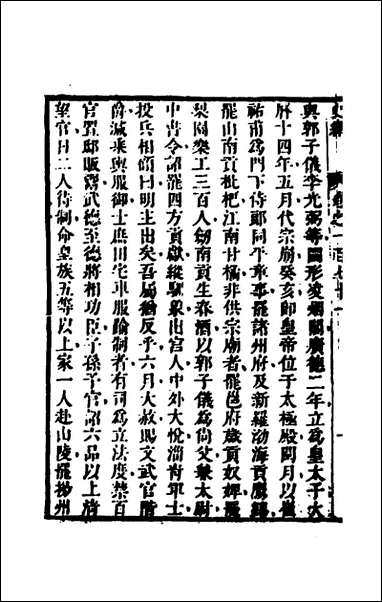 與郭子儀李光弼等圖形凌烟閣廣德二年立爲皇太子大
曆十四年五月代宗崩癸亥卽皇帝位于太極殿閏月以崔
祐甫爲門下侍郎同平章事罷諸州府及新羅渤海貢鷹鷂
罷山南貢枇杷江南甘橘非供宗廟者罷邕府歲貢奴婢罷
梨園樂工三百人劒南貢生春酒以郭子儀爲尙父兼太尉
中書令詔罷四方貢獻縱馴象出宮人中外大悅淄靑軍士
投兵相顧曰明主出矣吾屬猶反乎六月大赦賜文武官階
爵減乘輿服御士庶田宅車服踰制者有司爲立法度禁百
官置邸販鬻武德至德將相功臣子孫予官詔六品以上淸
望官日二人待制命皇族五等以上家一人赴山陵罷揚州